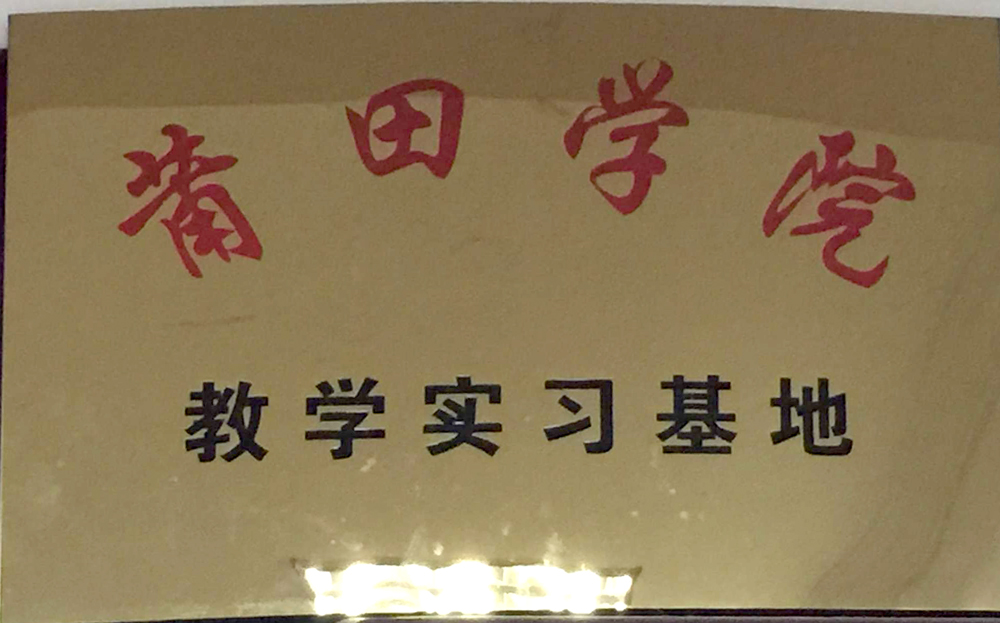 莆田学院
教学实习基地